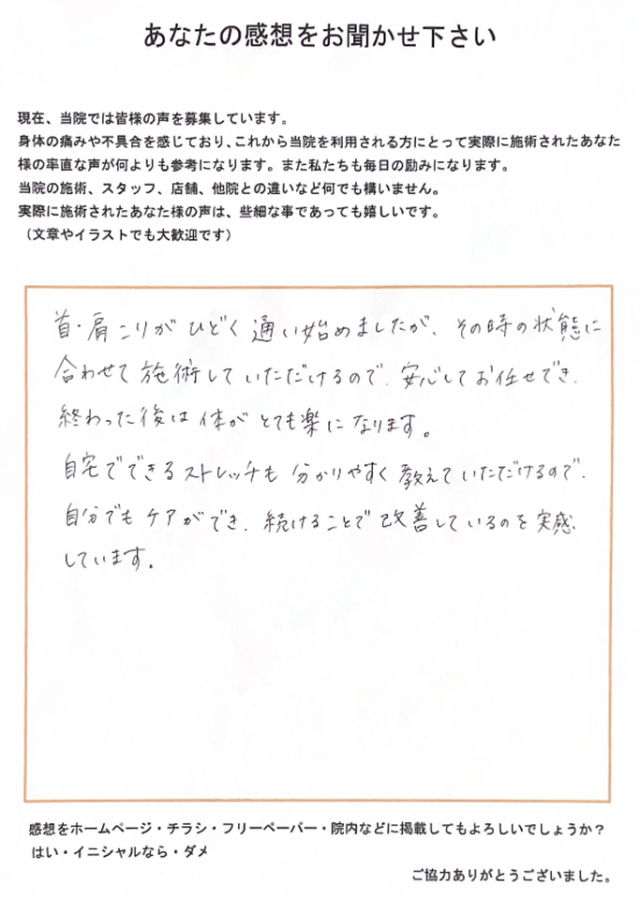 あなたの感想をお聞かせ下さい
現在、当院では皆様の声を募集しています。
身体の痛みや不具合を感じており、これから当院を利用される方にとって実際に施術されたあなた
様の率直な声が何よりも参考になります。また私たちも毎日の励みになります。
当院の施術、スタッフ、店舗、他院との違いなど何でも構いません。
実際に施術されたあなた様の声は、些細な事であっても嬉しいです。
（文章やイラストでも大歓迎です）
首・肩こりがひどく通い始めましたが、その時の状態に
合わせて施術していただけるので、安心してお任せでき、
終わった後は体がとても楽になります。
自宅でできるストレッチも分かりやすく教えていただけるので、
自分でもケアができ、続けることで改善しているのを実感
しています。
感想をホームページ・チラシ・フリーペーパー・院内などに掲載してもよろしいでしょうか？
はい・イニシャルなら・ダメ
ご協力ありがとうございました。